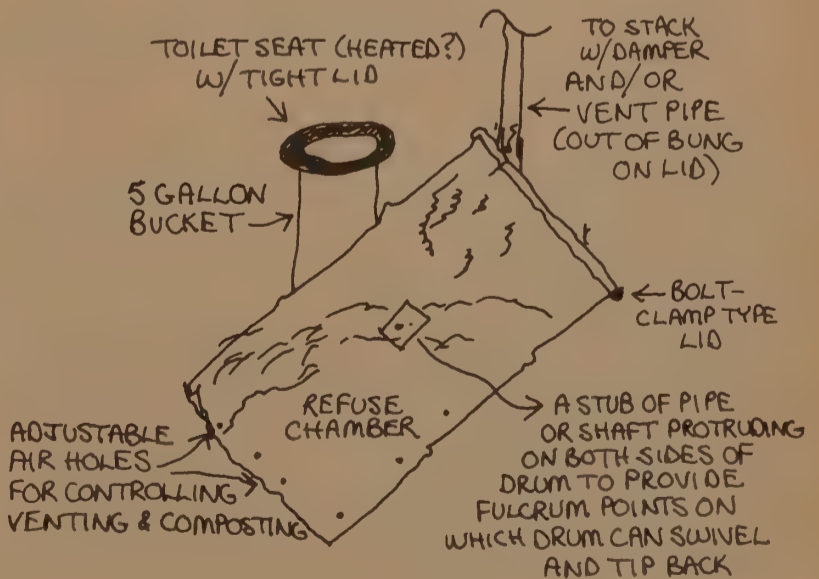 TOILET SEAT (HEATED?)
W/TIGHT LID
TO STACK
W/DAMPER
AND/OR
VENT PIPE
(OUT OF BUNG
ON LID)
5 GALLON
BUCKET
BOLT-
CLAMP TYPE
LID
REFUSE
CHAMBER
ADJUSTABLE
AIR HOLES
FOR CONTROLLING
VENTING & COMPOSTING
A STUB OF PIPE
OR SHAFT PROTRUDING
ON BOTH SIDES OF
DRUM TO PROVIDE
FULCRUM POINTS ON
WHICH DRUM CAN SWIVEL
AND TIP BACK